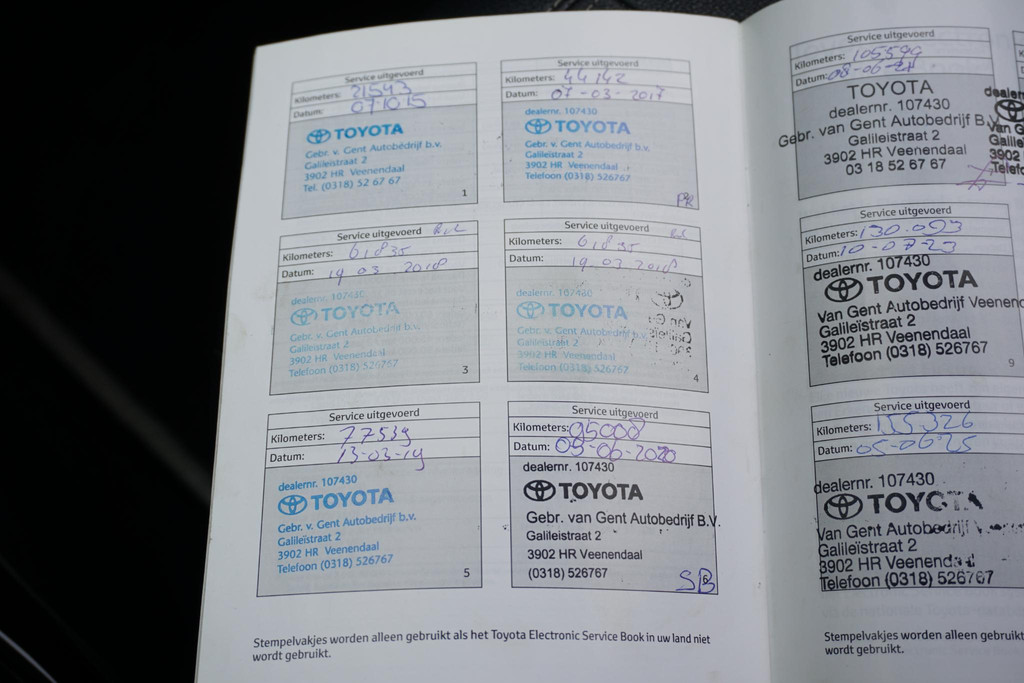 Service uitgevoerd
Kilometers: 21543
Datum: 07-10-15
TOYOTA
Gebr. v. Gent Autobedrijf b.v.
Galileïstraat 2
3902 HR Veenendaal
Tel. (0318) 52 67 67
1
Service uitgevoerd
Kilometers: 44142
Datum: 07-03-2017
dealernr. 107430
TOYOTA
Gebr. v. Gent Autobedrijf b.v.
Galileïstraat 2
3902 HR Veenendaal
Telefoon (0318) 526767
Service uitgevoerd
Kilometers: 61835
Datum: 19 03 2018
dealernr. 107430
TOYOTA
Gebr. v. Gent Autobedrijf b.v.
Galileïstraat 2
3902 HR Veenendaal
Telefoon (0318) 526767
3
Service uitgevoerd
Kilometers: 61835
Datum: 19.03.2018
dealernr. 107430
TOYOTA
Gebr. v. Gent Autobedrijf b.v.
Galileïstraat 2
3902 HR Veenendaal
Telefoon (0318) 526767
4
Service uitgevoerd
Kilometers: 77539
Datum: 13-03-19
dealernr. 107430
TOYOTA
Gebr. v. Gent Autobedrijf b.v.
Galileïstraat 2
3902 HR Veenendaal
Telefoon (0318) 526767
5
Service uitgevoerd
Kilometers: 95008
Datum: 09-06-2020
dealernr. 107430
TOYOTA
Gebr. van Gent Autobedrijf B.V.
Galileïstraat 2
3902 HR Veenendaal
(0318) 526767
SB
Stempelvakjes worden alleen gebruikt als het Toyota Electronic Service Book in uw land niet
wordt gebruikt.
Service uitgevoerd
Kilometers: 105599
Datum: 08-06-21
TOYOTA
dealernr. 107430
Gebr. van Gent Autobedrijf B.V.
Galileistraat 2
3902 HR Veenendaal
03 18 52 67 67
Service uitgevoerd
Kilometers: 130.093
Datum: 10-07-23
dealernr. 107430
TOYOTA
Van Gent Autobedrijf Veenend
Galileïstraat 2
3902 HR Veenendaal
Telefoon (0318) 526767
9
Service uitgevoerd
Kilometers: 155326
Datum: 05-06-25
dealernr. 107430
TOYOTA
Van Gent Autobedrijf
Galileïstraat 2
3902 HR Veenendaal
Telefoon (0318) 526767
Stempelvakjes worden alleen gebruikt
wordt gebruikt.